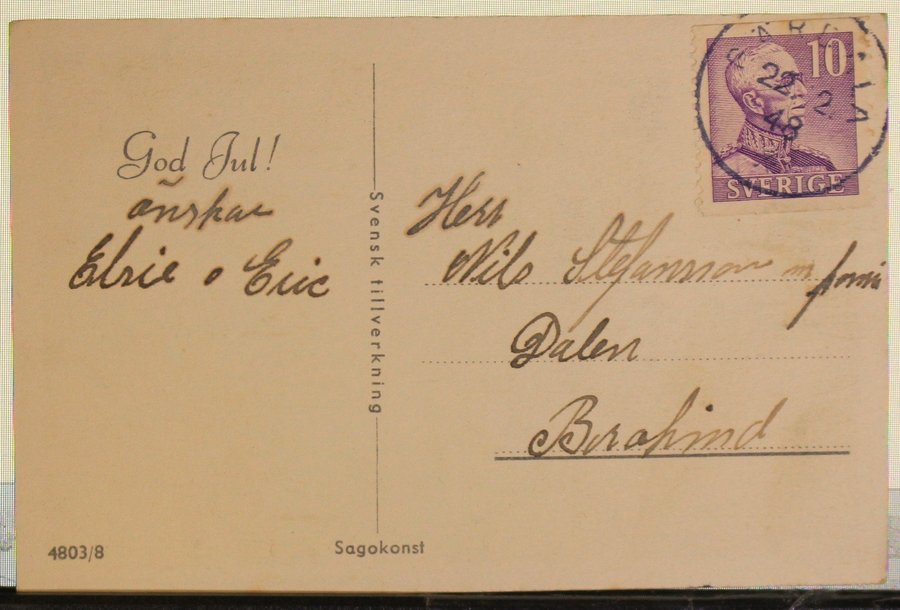 God Jul!
önskar
Elsie o Eric
Svensk tillverkning
Herr
Nils Stefansson m famj
Dalen
10
22 2
48
SVERIGE
4803/8
Sagokonst